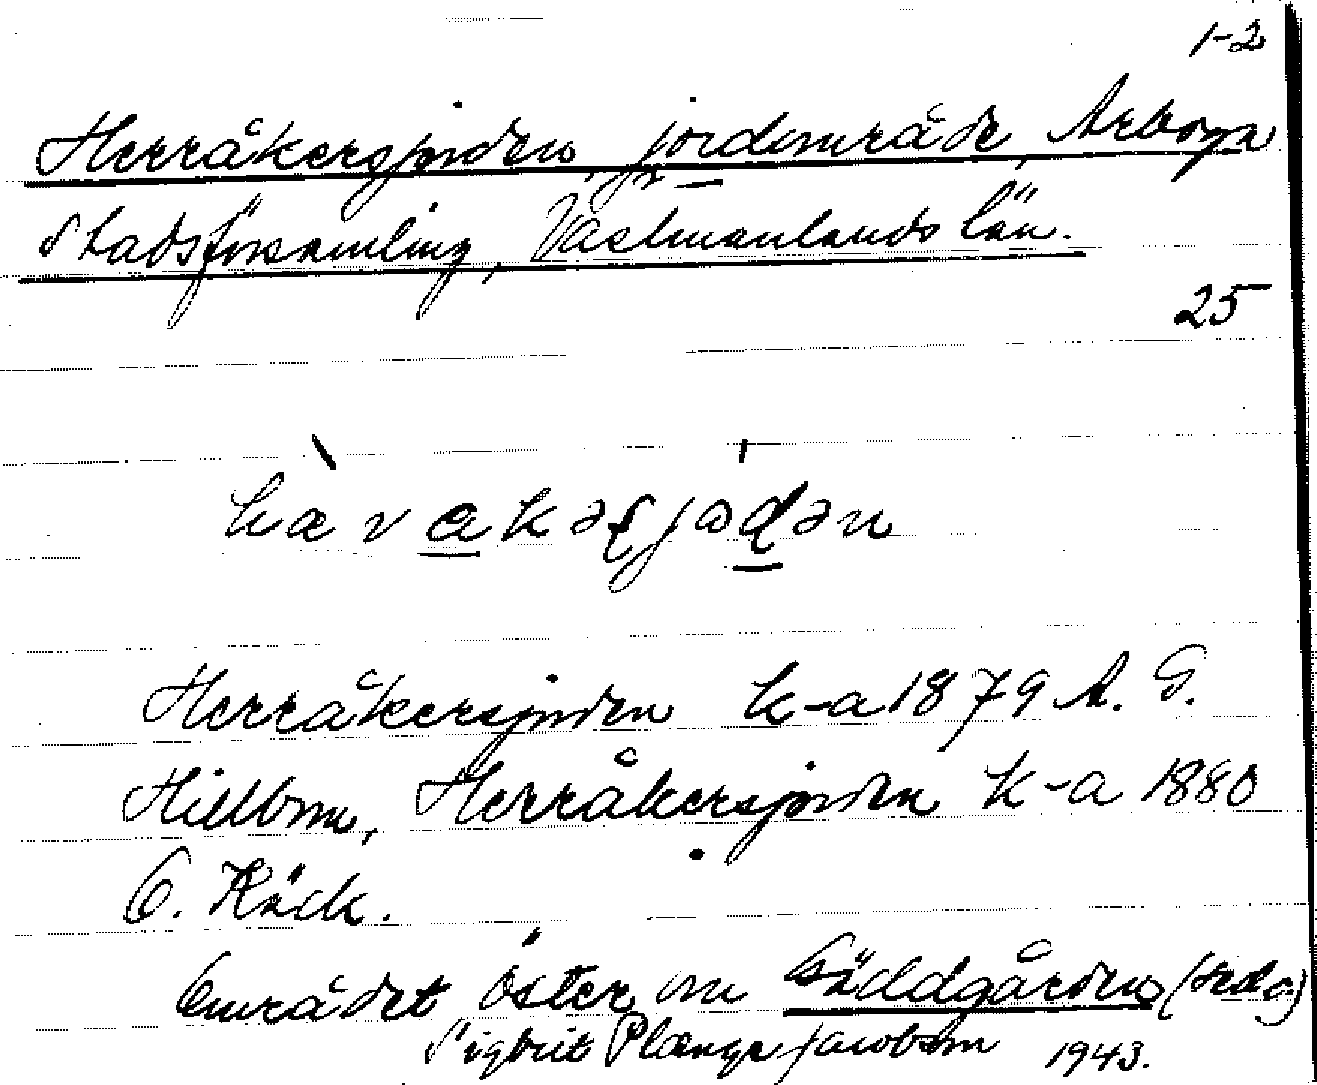 1-2
Herråkersjorden, jordområde, Arboga
stadsförsamling, Västmanlands län.
25
hæ̀rakəʂjóɖən
Herråkersjorden k-a 1879 A. G.
Hillbom, Herråkersjorden k-a 1880
C. Käck.
Området öster om Gäddgården (se d.o)
Sigbrit Plænge Jacobson 1943.